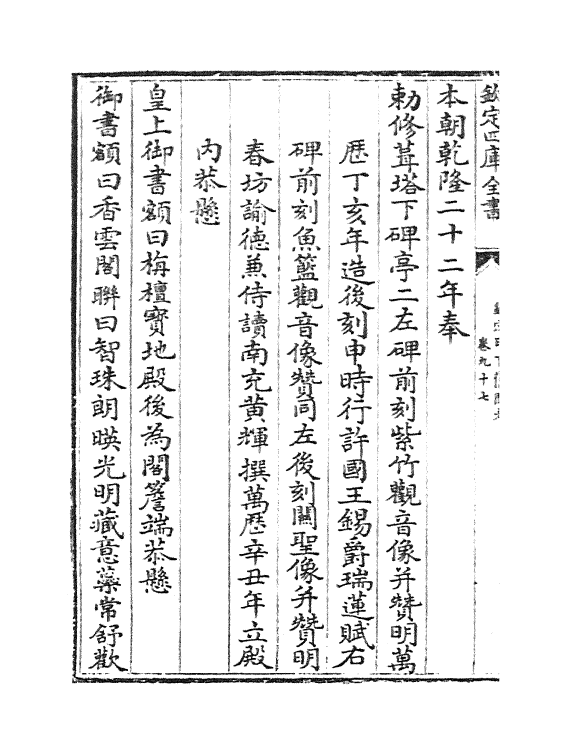 欽定四庫全書
卷九十七
本朝乾隆二十二年奉
勅修葺塔下碑亭二左碑前刻紫竹觀音像并贊明萬
歴丁亥年造後刻申時行許國王錫爵瑞蓮賦右
碑前刻魚籃觀音像贊同左後刻關聖像并贊明
春坊諭德兼侍讀南充黄輝撰萬歴辛丑年立殿
内恭懸
皇上御書額曰栴檀寳地殿後為閣簷端恭懸
御書額曰香雲閣聯曰智珠朗暎光明藏意蘂常舒歡